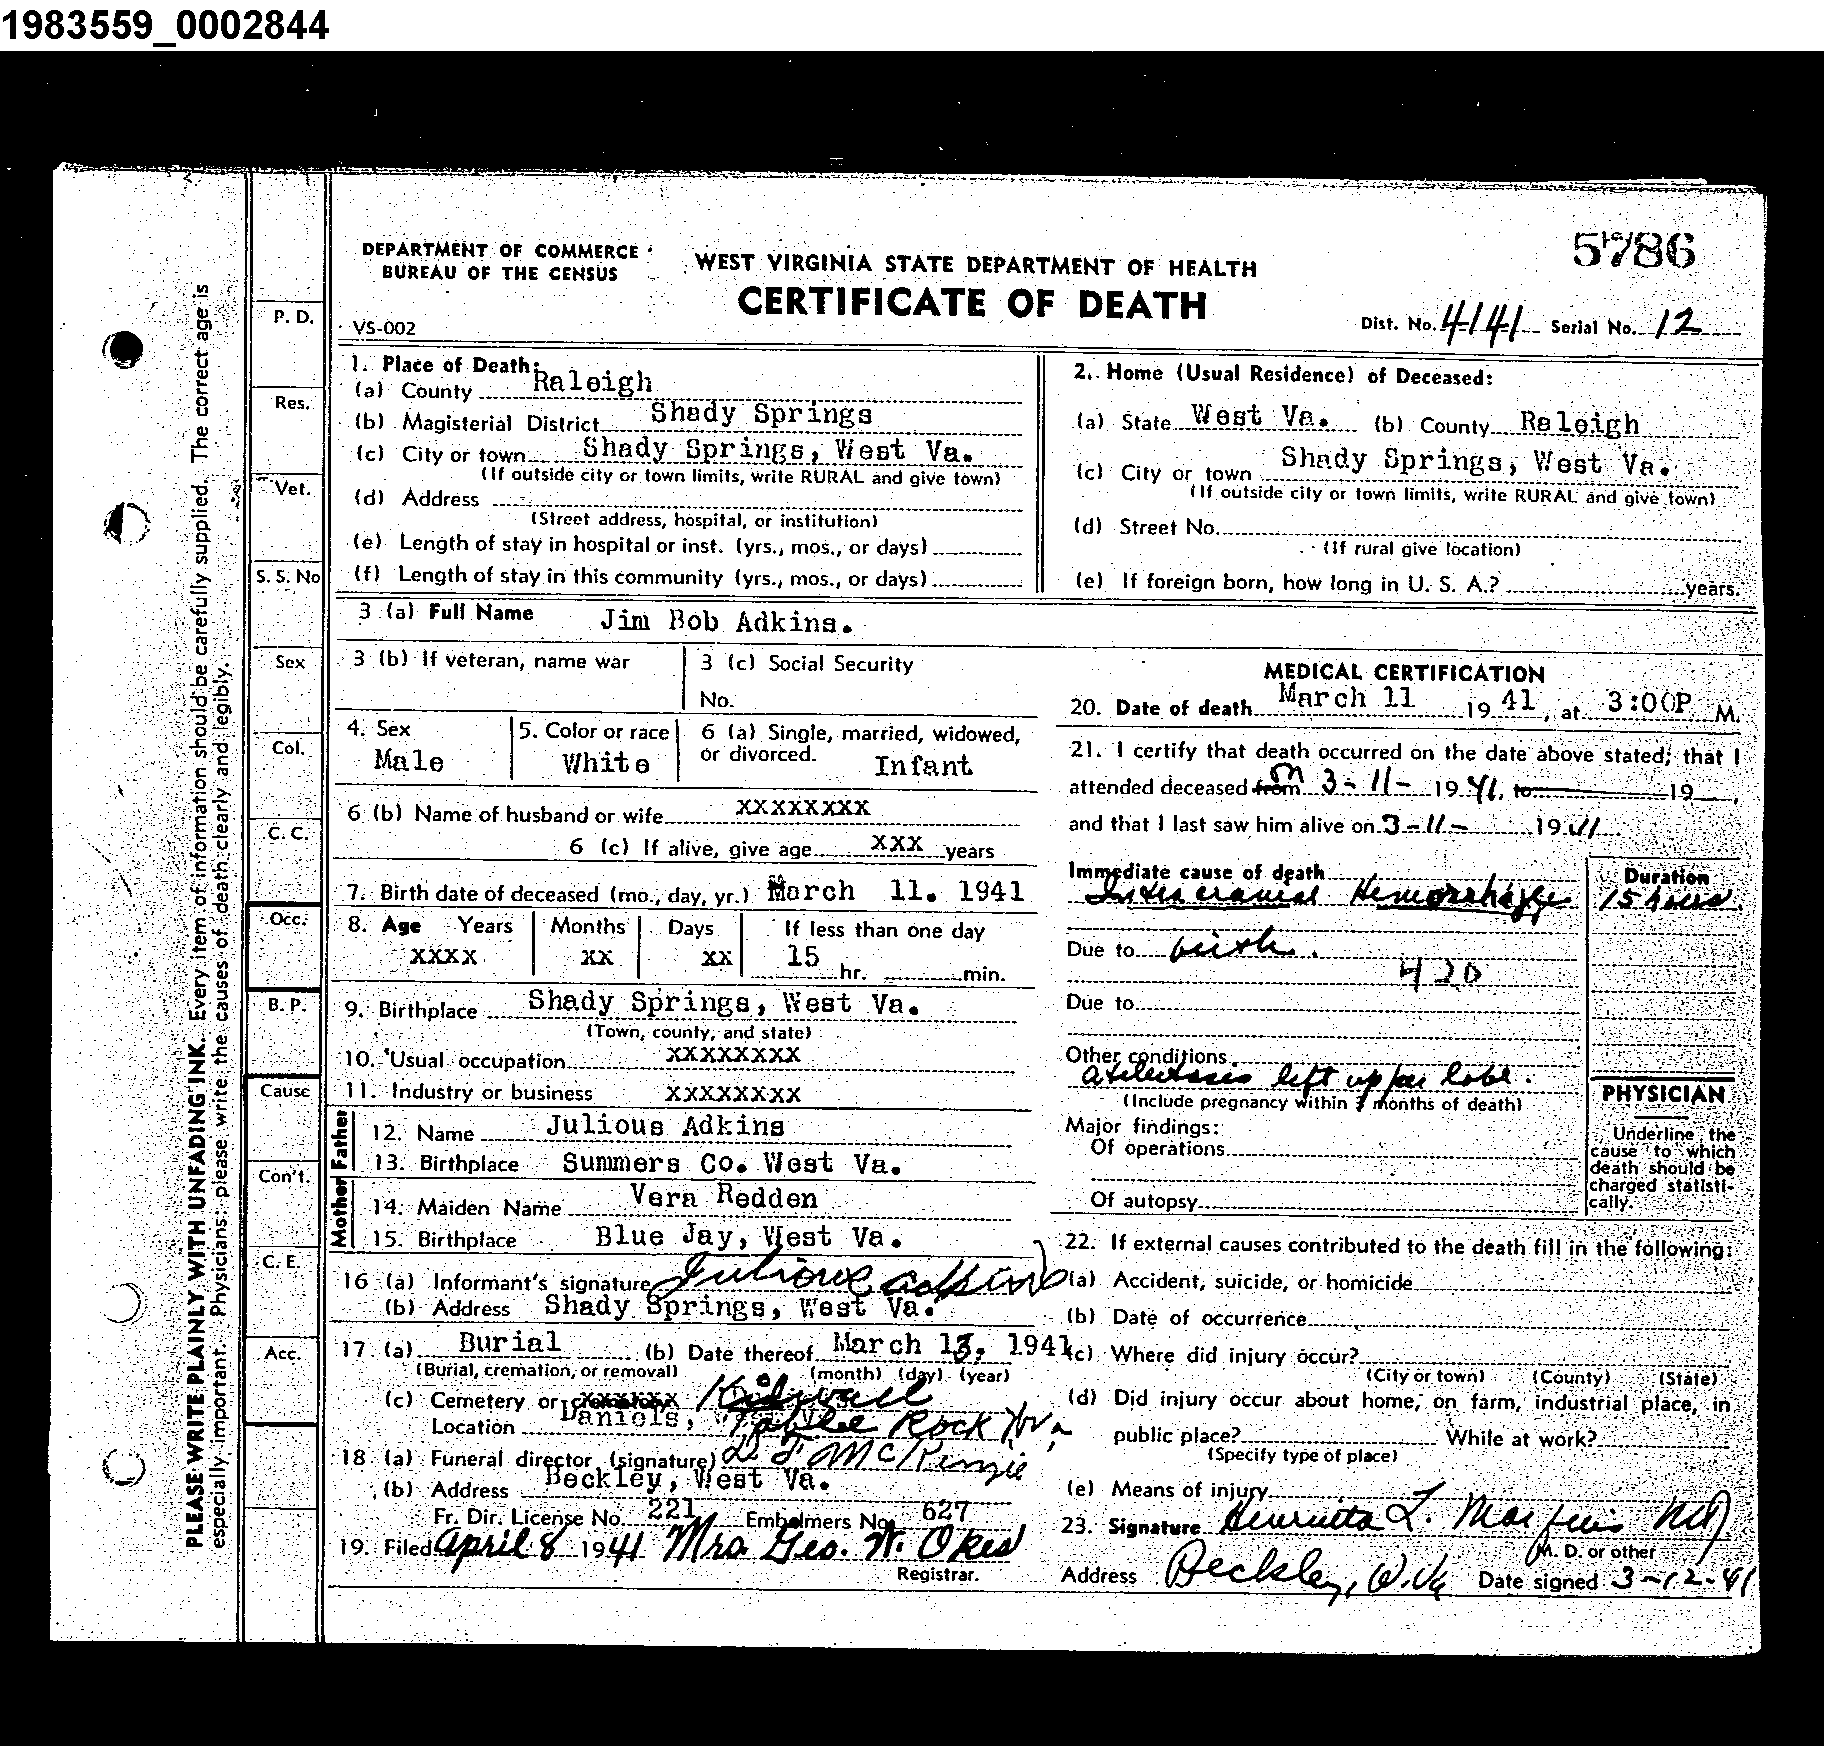 1983559_0002844
5786
DEPARTMENT OF COMMERCE
BUREAU OF THE CENSUS
WEST VIRGINIA STATE DEPARTMENT OF HEALTH
CERTIFICATE OF DEATH
VS-002
Dist. No. 4141 Serial No. 12
PLEASE WRITE PLAINLY WITH UNFADING INK. Every item of information should be carefully supplied. The correct age is
especially important. Physicians: please write the causes of death clearly and legibly.
P. D.
Res.
Vet.
S. S. No
Sex
Col.
C. C.
Occ.
B. P.
Cause
Con't.
C. E.
Acc.
1. Place of Death:
(a) County Raleigh
(b) Magisterial District Shady Springs
(c) City or town Shady Springs, West Va.
(If outside city or town limits, write RURAL and give town)
(d) Address
(Street address, hospital, or institution)
(e) Length of stay in hospital or inst. (yrs., mos., or days)
(f) Length of stay in this community (yrs., mos., or days)
2. Home (Usual Residence) of Deceased:
(a) State West Va. (b) County Raleigh
(c) City or town Shady Springs, West Va.
(If outside city or town limits, write RURAL and give town)
(d) Street No.
(If rural give location)
(e) If foreign born, how long in U. S. A.? years.
3 (a) Full Name Jim Bob Adkins.
3 (b) If veteran, name war
3 (c) Social Security
No.
4. Sex
Male
5. Color or race
White
6 (a) Single, married, widowed,
or divorced. Infant
6 (b) Name of husband or wife xxxxxxxx
6 (c) If alive, give age xxx years
7. Birth date of deceased (mo., day, yr.) March 11. 1941
8. Age Years Months Days If less than one day
xxxx xx xx 15 hr. min.
9. Birthplace Shady Springs, West Va.
(Town, county, and state)
10. Usual occupation xxxxxxxx
11. Industry or business xxxxxxxx
Father
12. Name Julious Adkins
13. Birthplace Summers Co. West Va.
Mother
14. Maiden Name Vera Redden
15. Birthplace Blue Jay, West Va.
16 (a) Informant's signature Julious Adkins
(b) Address Shady Springs, West Va.
17 (a) Burial (b) Date thereof March 13, 1941
(Burial, cremation, or removal) (month) (day) (year)
(c) Cemetery or crematory Kidwell
Location Daniels, West Va. Table Rock W Va
18 (a) Funeral director (signature) D F McKinzie
(b) Address Beckley, West Va.
Fr. Dir. License No. 221 Embalmers No. 627
19. Filed April 8 1941 Mrs Geo. W. Okes
Registrar.
MEDICAL CERTIFICATION
20. Date of death March 11 1941, at 3:00P M.
21. I certify that death occurred on the date above stated; that I
attended deceased from on 3-11- 1941, to 19 ,
and that I last saw him alive on 3-11- 1941
Immediate cause of death
Intercranial Hemorrhage
Duration
15 hours.
Due to birth.
420
Due to
Other conditions
atelectasis left upper lobe.
(Include pregnancy within 3 months of death)
Major findings:
Of operations
Of autopsy
PHYSICIAN
Underline the
cause to which
death should be
charged statisti-
cally.
22. If external causes contributed to the death fill in the following:
(a) Accident, suicide, or homicide
(b) Date of occurrence
(c) Where did injury occur?
(City or town) (County) (State)
(d) Did injury occur about home, on farm, industrial place, in
public place? While at work?
(Specify type of place)
(e) Means of injury
23. Signature Henrietta L. MD
M. D. or other
Address Beckley, W.Va Date signed 3-12-41